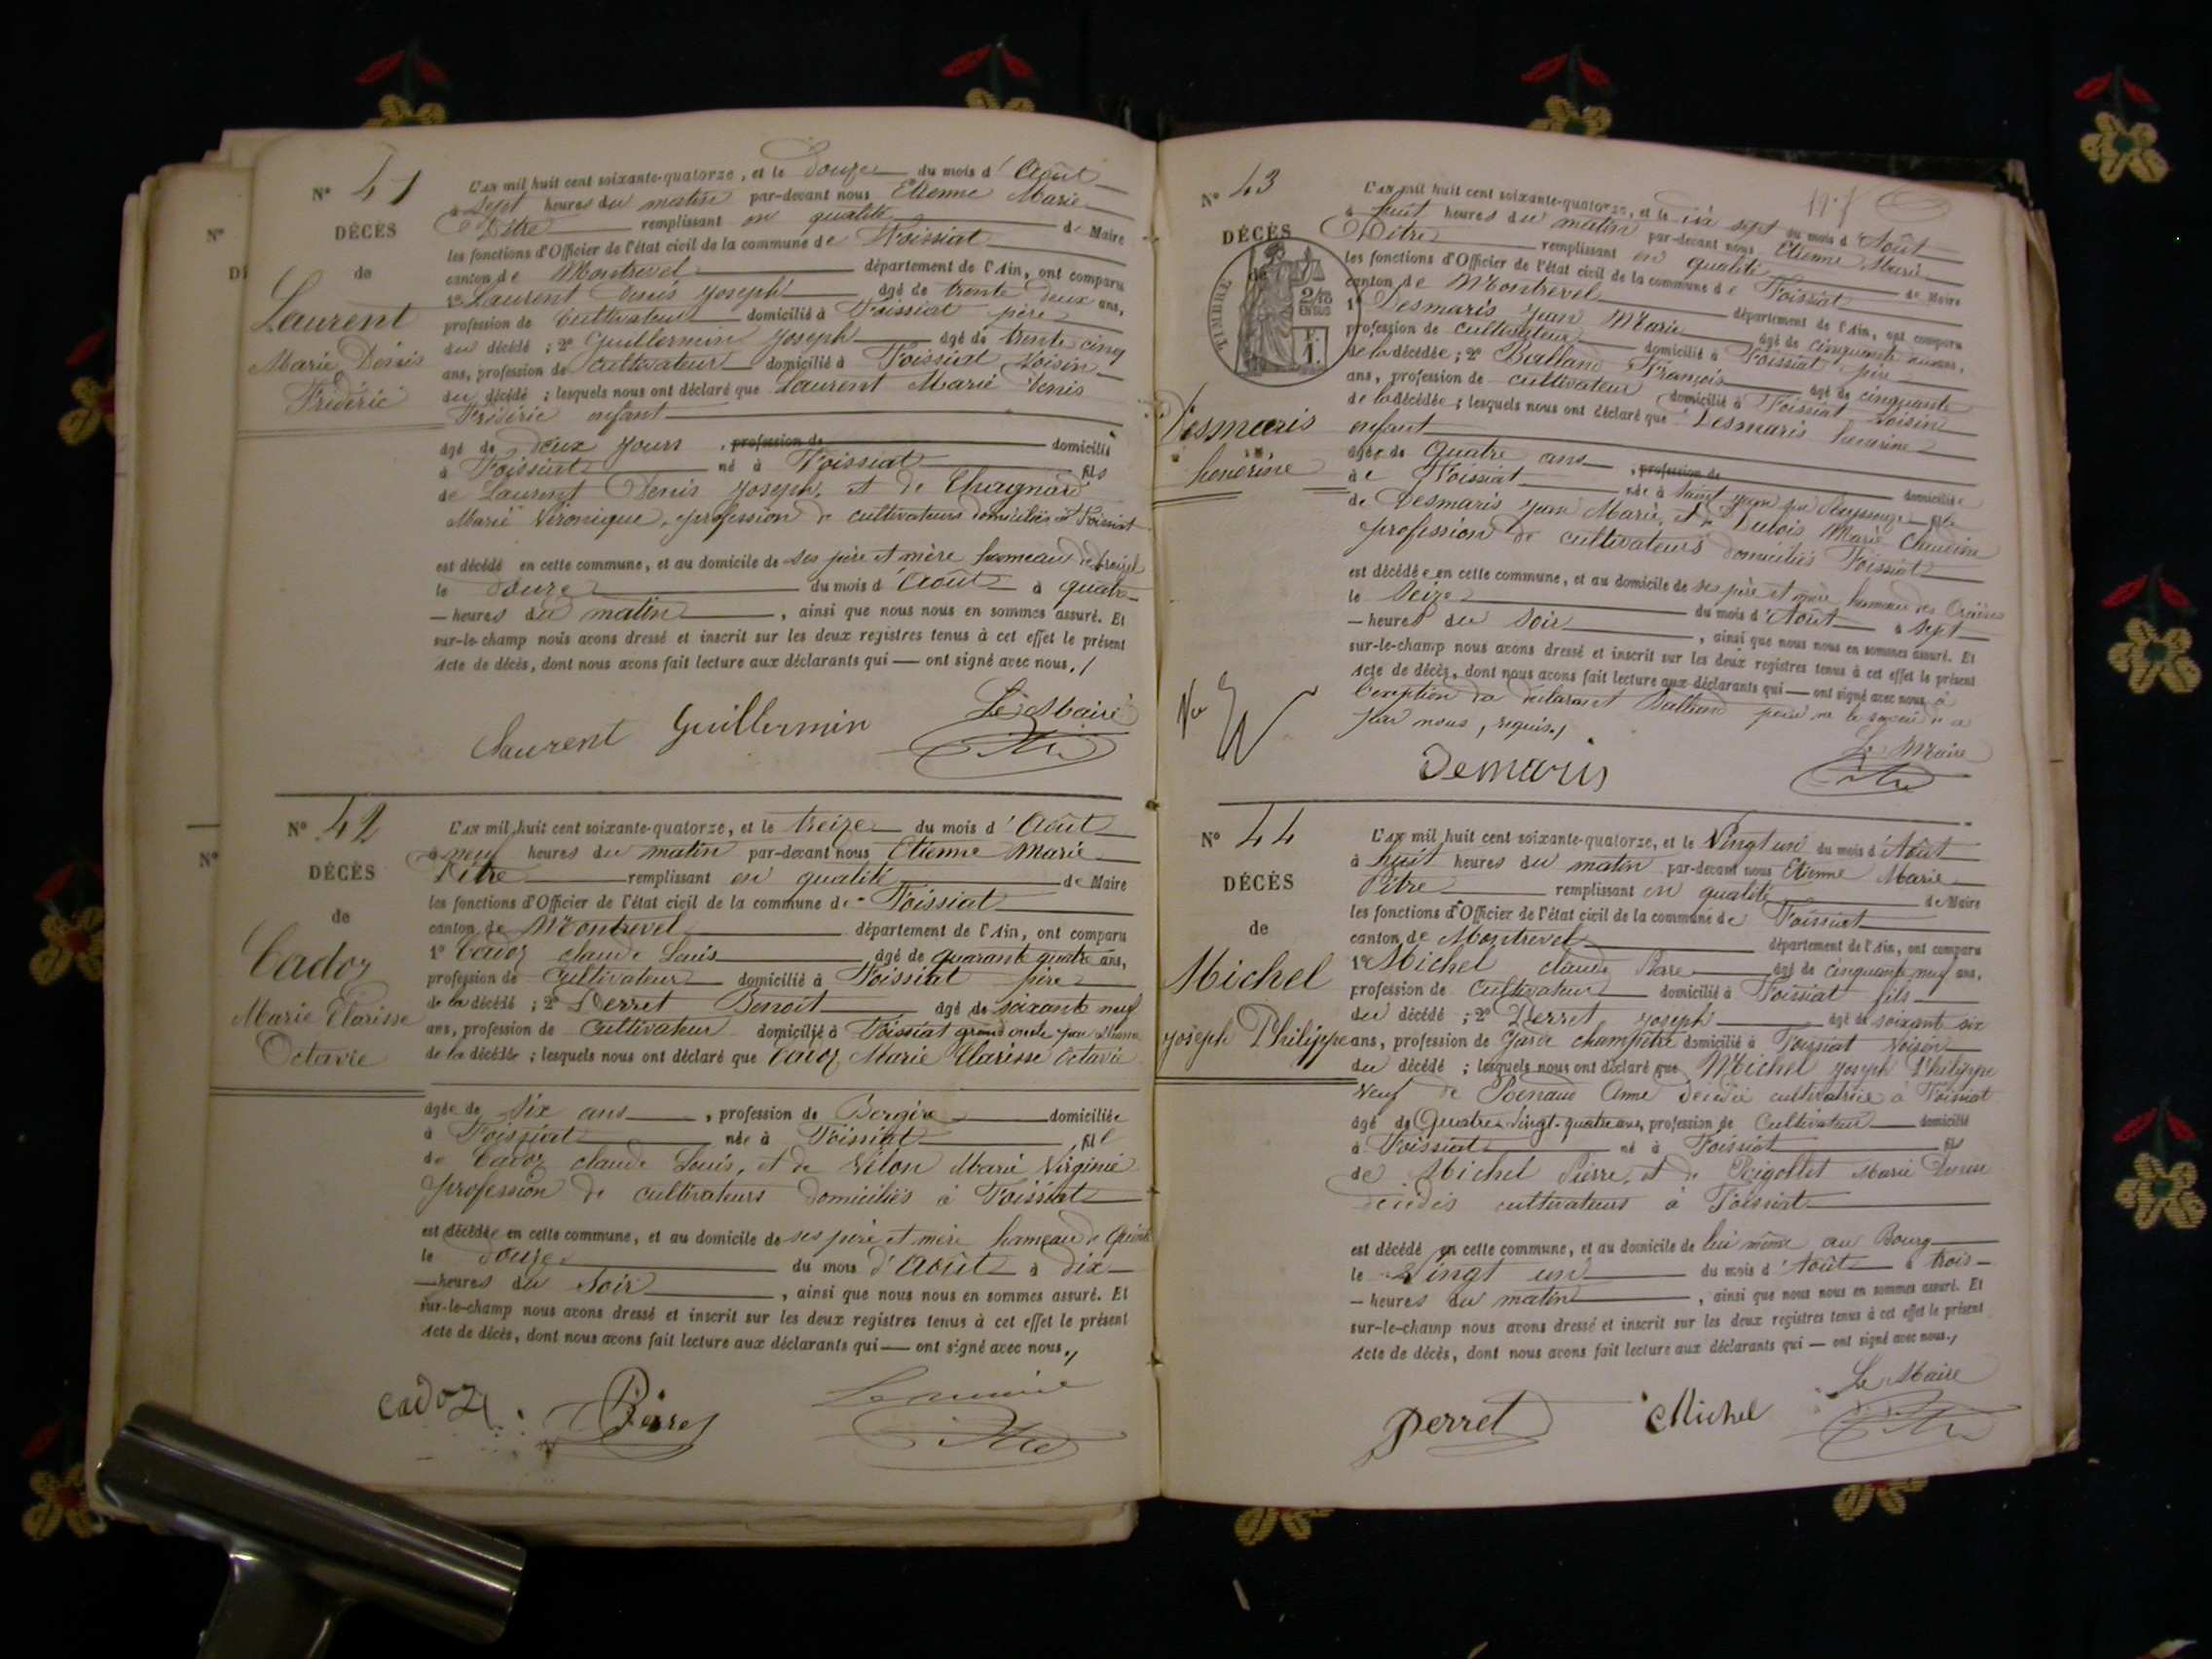 N° 41
DÉCÈS
de
Laurent
Marie Denis
Frédéric
L'an mil huit cent soixante-quatorze, et le douze du mois d'Août
à sept heures du matin par-devant nous Etienne Marie
Pitre remplissant en qualité de Maire
les fonctions d'Officier de l'état civil de la commune de Foissiat
canton de Montrevel département de l'Ain, ont comparu
1° Laurent Denis Joseph âgé de trente deux ans,
profession de Cultivateur domicilié à Foissiat père
du décédé ; 2° Guillermin Joseph âgé de trente cinq
ans, profession de Cultivateur domicilié à Foissiat voisin
du décédé ; lesquels nous ont déclaré que Laurent Marie Denis
Frédéric enfant
âgé de deux jours , profession de domicilié
à Foissiat né à Foissiat fils
de Laurent Denis Joseph, et de Chagnard
Marie Véronique, profession de cultivateurs domiciliés à Foissiat
est décédé en cette commune, et au domicile de ses père et mère hameau de
le douze du mois d'Août à quatre
heures du matin , ainsi que nous nous en sommes assuré. Et
sur-le-champ nous avons dressé et inscrit sur les deux registres tenus à cet effet le présent
Acte de décès, dont nous avons fait lecture aux déclarants qui — ont signé avec nous./
Laurent Guillermin Le Maire
Pitre
N° 42
DÉCÈS
de
Cadoz
Marie Clarisse
Octavie
L'an mil huit cent soixante-quatorze, et le treize du mois d'Août
à neuf heures du matin par-devant nous Etienne Marie
Pitre remplissant en qualité de Maire
les fonctions d'Officier de l'état civil de la commune de Foissiat
canton de Montrevel département de l'Ain, ont comparu
1° Cadoz Claude Louis âgé de quarante quatre ans,
profession de Cultivateur domicilié à Foissiat père
de la décédé ; 2° Perret Benoit âgé de soixante neuf
ans, profession de Cultivateur domicilié à Foissiat grand oncle par
de la décédée ; lesquels nous ont déclaré que Cadoz Marie Clarisse Octavie
âgée de six ans , profession de Bergère domiciliée
à Foissiat née à Foissiat fille
de Cadoz Claude Louis, et de Vilon Marie Virginie
profession de cultivateurs domiciliés à Foissiat
est décédée en cette commune, et au domicile de ses père et mère hameau de
le douze du mois d'Août à dix
heures du soir , ainsi que nous nous en sommes assuré. Et
sur-le-champ nous avons dressé et inscrit sur les deux registres tenus à cet effet le présent
Acte de décès, dont nous avons fait lecture aux déclarants qui — ont signé avec nous./
Cadoz Perret Le maire
Pitre
N° 43
DÉCÈS
de
TIMBRE
2/10
EN SUS
F.
1.
Desmaris
honorine
L'an mil huit cent soixante-quatorze, et le dix sept du mois d'Août
à huit heures du matin par-devant nous Etienne Marie
Pitre remplissant en qualité de Maire
les fonctions d'Officier de l'état civil de la commune de Foissiat
canton de Montrevel département de l'Ain, ont comparu
1° Desmaris Jean Marie âgé de cinquante ans,
profession de cultivateur domicilié à Foissiat père
de la décédée ; 2° Balland François âgé de cinquante
ans, profession de cultivateur domicilié à Foissiat voisin
de la décédée ; lesquels nous ont déclaré que Desmaris honorine
enfant
âgée de Quatre ans , profession de domiciliée
à Foissiat née à Saint Jean sur Reyssouze fille
de Desmaris Jean Marie, et de Dubois Marie Claudine
profession de cultivateurs domiciliés Foissiat
est décédée en cette commune, et au domicile de ses père et mère hameau des
le Seize du mois d'Août à sept
heures du soir , ainsi que nous nous en sommes assuré. Et
sur-le-champ nous avons dressé et inscrit sur les deux registres tenus à cet effet le présent
Acte de décès, dont nous avons fait lecture aux déclarants qui — ont signé avec nous à
l'exception du déclarant Balland pour ne le savoir de ce
par nous, requis./
Le Maire
Demaris Pitre
N° 44
DÉCÈS
de
Michel
Joseph Philippe
L'an mil huit cent soixante-quatorze, et le Vingt un du mois d'Août
à huit heures du matin par-devant nous Etienne Marie
Pitre remplissant en qualité de Maire
les fonctions d'Officier de l'état civil de la commune de Foissiat
canton de Montrevel département de l'Ain, ont comparu
1° Michel Claude Pierre âgé de cinquante neuf ans,
profession de Cultivateur domicilié à Foissiat fils
du décédé ; 2° Perret Joseph âgé de soixante six
ans, profession de Garde champêtre domicilié à Foissiat voisin
du décédé ; lesquels nous ont déclaré que Michel Joseph Philippe
veuf de Anne décédée cultivatrice à Foissiat
âgé de Quatre Vingt-quatre ans, profession de Cultivateur domicilié
à Foissiat né à Foissiat fils
de Michel Pierre, et de Marie
décédés cultivateurs à Foissiat
est décédé en cette commune, et au domicile de lui même au Bourg
le Vingt un du mois d'Août à trois
heures du matin , ainsi que nous nous en sommes assuré. Et
sur-le-champ nous avons dressé et inscrit sur les deux registres tenus à cet effet le présent
Acte de décès, dont nous avons fait lecture aux déclarants qui — ont signé avec nous./
Le Maire
Perret Michel Pitre